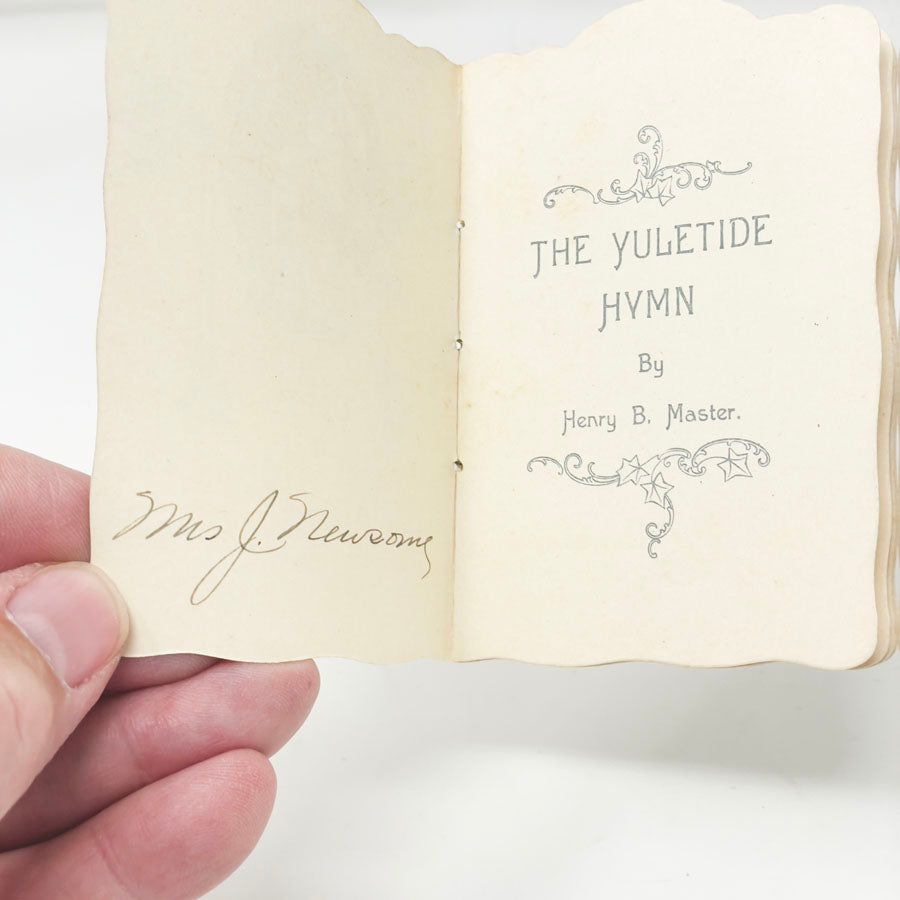 Mrs J. Newsome
THE YULETIDE
HYMN
By
Henry B. Master.